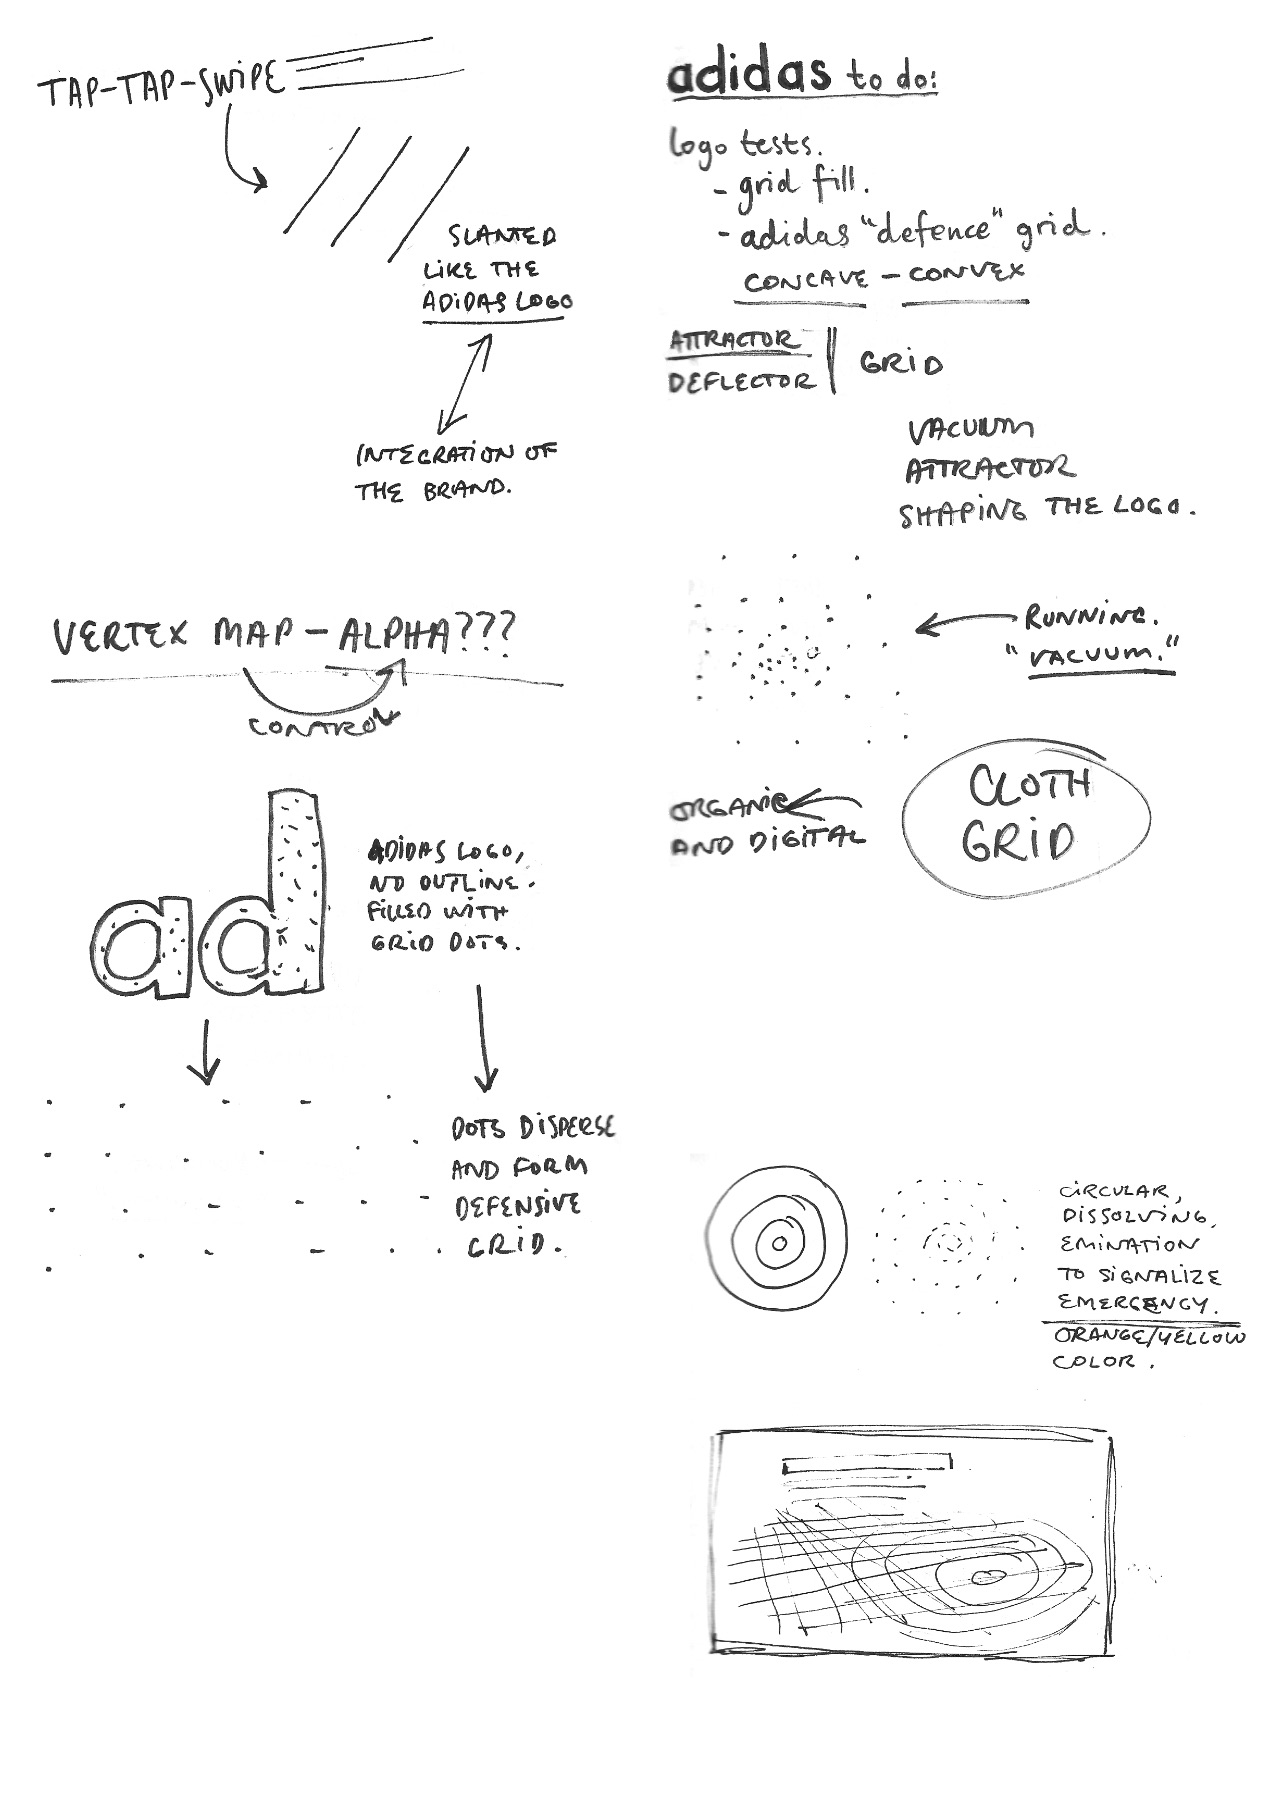 TAP-TAP-SWIPE
SLANTED
LIKE THE
ADIDAS LOGO
INTEGRATION OF
THE BRAND.
VERTEX MAP - ALPHA???
CONTROL
ad
ADIDAS LOGO,
NO OUTLINE.
FILLED WITH
GRID DOTS.
DOTS DISPERSE
AND FORM
DEFENSIVE
GRID.
adidas to do:
logo tests.
- grid fill.
- adidas "defence" grid.
CONCAVE - CONVEX
ATTRACTOR
DEFLECTOR
GRID
VACUUM
ATTRACTOR
SHAPING THE LOGO.
RUNNING.
"VACUUM."
ORGANIC
AND DIGITAL
CLOTH
GRID
CIRCULAR,
DISSOLVING,
EMINATION
TO SIGNALIZE
EMERGENCY.
ORANGE/YELLOW
COLOR.